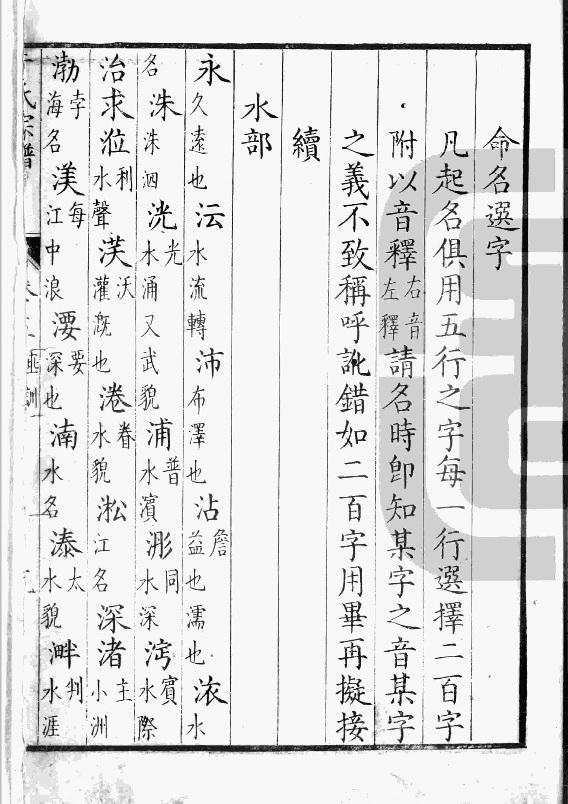 命名選字
凡起名俱用五行之字每一行選擇二百字
附以音釋右音左釋請名時卽知某字之音某字
之義不致稱呼訛錯如二百字用畢再擬接
續
水部
永久遠也沄水流轉沛布澤也沾詹益也濡也水
名洙洙泗洸光水涌又武貌浦普水濱浵同水深濱水際
治求涖利水聲沃灌溉也淃眷水貌淞江名深渚主小洲
渤孛海名渼每江中浪要深也湳水名溙太水貌溿判水涯
氏宗譜